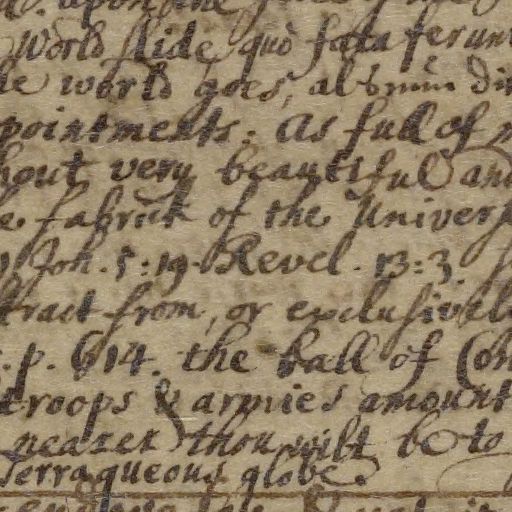 World slide, quò fata ferunt
world goes, as
pointments. As full of
bout very beautiful and
fabrick of the Univers
Joh. 5:19. Revel. 13:3.
tract from, or exclusivel
p. 614. the ball of Con
troops & armies amount
nearer thou wilt be to
Terraqueous globe.